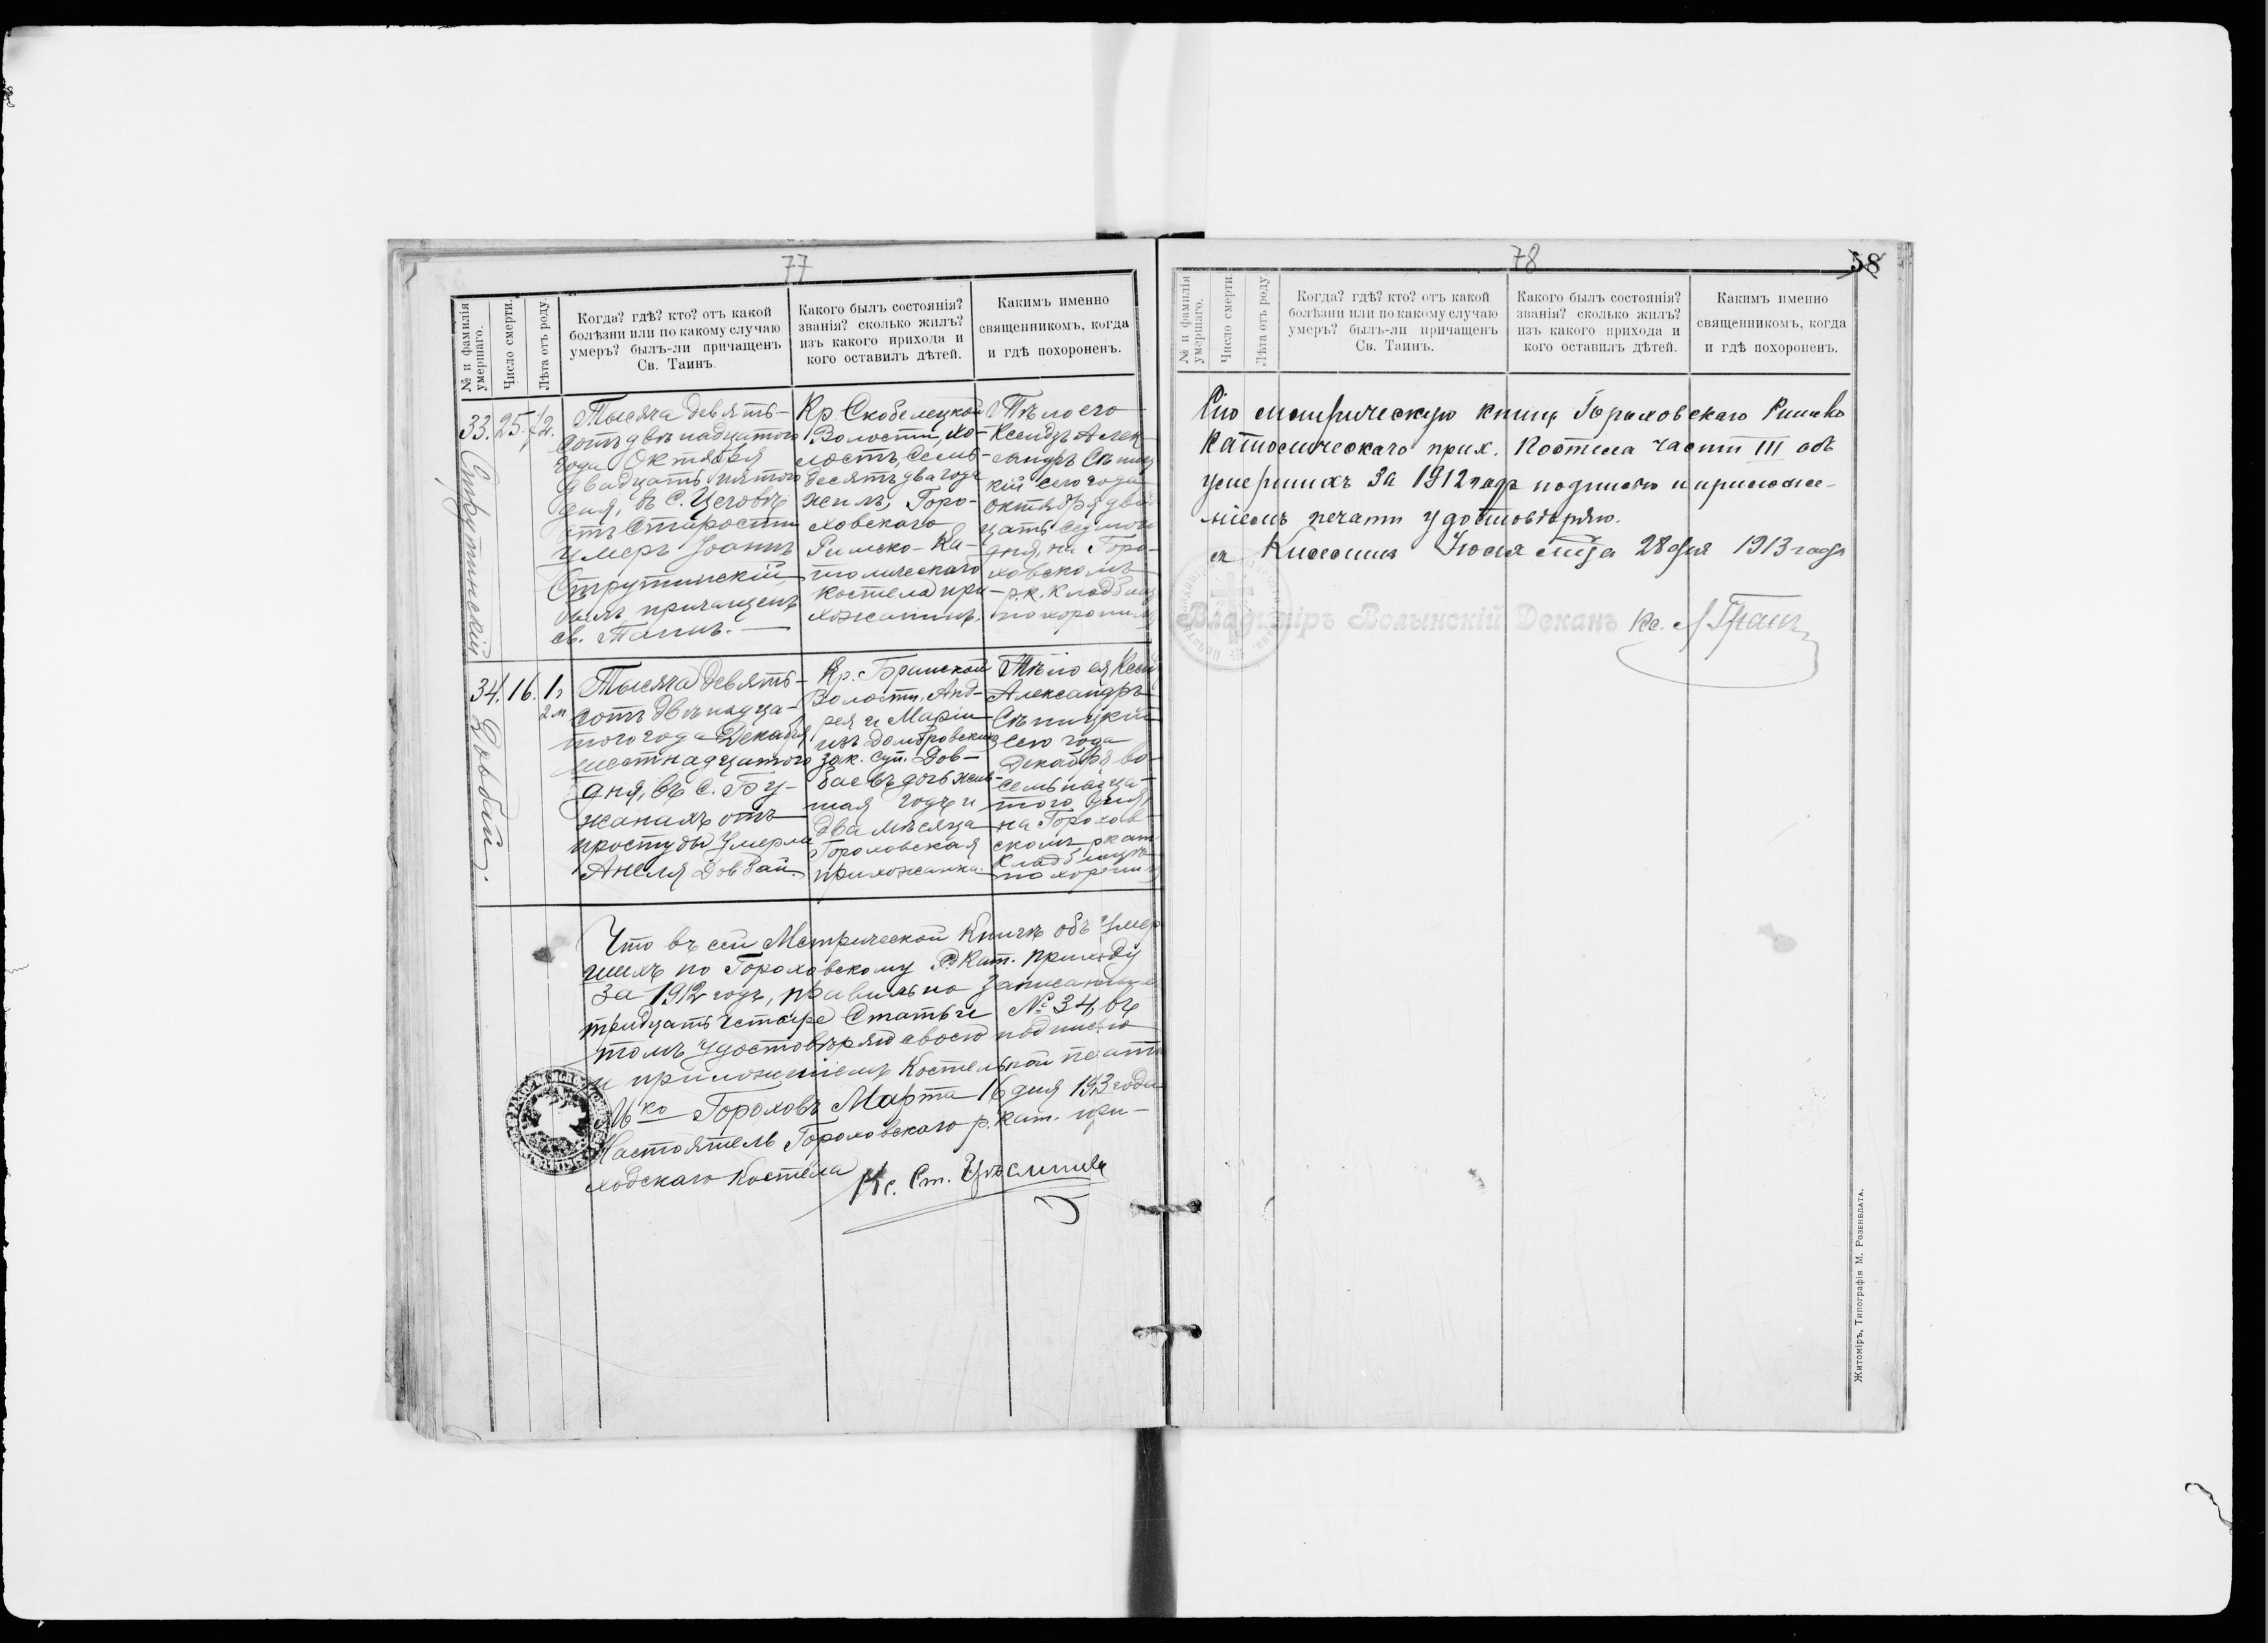 77
№ и фамилія умершаго.
Число смерти.
Лѣта отъ роду.
Когда? гдѣ? кто? отъ какой
болѣзни или по какому случаю
умеръ? былъ-ли причащенъ
Св. Таинъ.
Какого былъ состоянія?
званія? сколько жилъ?
изъ какого прихода и
кого оставилъ дѣтей.
Какимъ именно
священникомъ, когда
и гдѣ похороненъ.
33.
Струтинскій
25.
72.
Тысяча девять-
сотъ двѣнадцатого
года Октября
двадцать пятого
дня, въ С. Цеговѣ
отъ старости
умеръ Іоаннъ
Струтинскій
былъ причащенъ
св. Таинъ.
Кр. Скобелецкой
Волости, хо-
лостъ, семь-
десятъ два года
жилъ, Горо-
ховскаго
Римско-Ка-
толическаго
костела при-
хожанинъ.
Тѣло его
Ксендзъ Алек-
сандръ
кій сего года
октября два
цать седмого
дня, на Горо-
ховскомъ
р.к. кладбищ
похоронилъ
34.
Довбай.
16.
1 г
2 м
Тысяча девять-
сотъ двѣнадца-
того года Декабря
шестнадцатого
дня, въ С. Бу-
жанахъ отъ
простуды умерла
Анеля Довбай.
Кр. Бранской
Волости, Анд-
рея и Маріи
изъ Домбровскихъ
зак. суп. Дов-
баевъ дочь жив-
шая годъ и
два мѣсяца
Гороховская
прихожанка.
Тѣло ея Ксен
Александръ
сего года
Декабря во-
семьнадца-
того дня,
на Горохов-
скомъ р кат
кладбищѣ
похорони
Что въ сей Метрической Книгѣ объ умер
шихъ по Гороховскому Р. Кат. приходу
за 1912 годъ, правильно записанные
тридцать четыре Статьи № 34, въ
томъ удостовѣряю своею подписью
и приложеніемъ Костельной печати
М-ко Гороховъ Марта 16 дня 1913 года
Настоятель Гороховскаго р. кат. при-
ходскаго Костела Кс. Ст.
78
58
№ и фамилія умершаго.
Число смерти
Лѣта отъ роду
Когда? гдѣ? кто? отъ какой
болѣзни или по какому случаю
умеръ? былъ-ли причащенъ
Св. Таинъ.
Какого былъ состоянія?
званія? сколько жилъ?
изъ какого прихода и
кого оставилъ дѣтей.
Какимъ именно
священникомъ, когда
и гдѣ похороненъ.
Сію метрическую книгу Гороховскаго Римско
Католическаго прих. Костела части III объ
умершихъ за 1912 годъ подписью и приложе-
ніемъ печати удостовѣряю.
м Киселинъ Іюня мѣца 28 дня 1913 года
Владиміръ Волынскій Деканъ Кс.
Житоміръ, Типографія М. Розенблата.